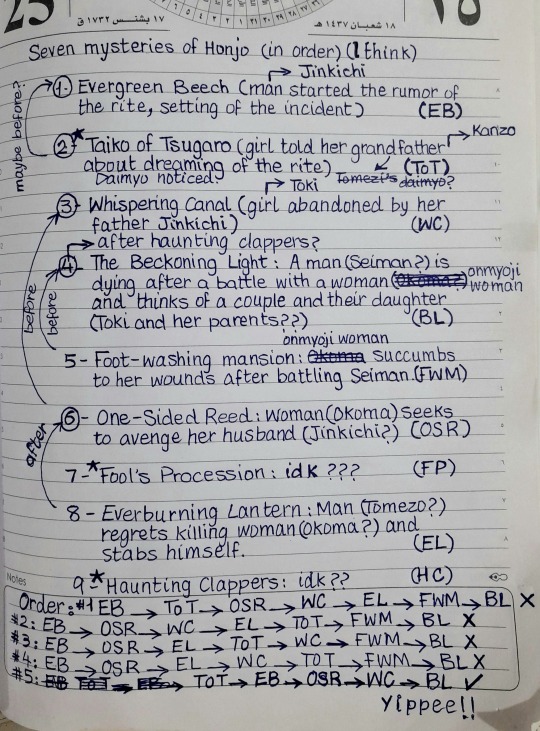 25
١٧ بشنس ١٧٣٢ ق
١٨ شعبان ١٤٣٧ هـ
١٥
Seven mysteries of Honjo (in order) (I think)
→ Jinkichi
maybe before?
1- Evergreen Beech (man started the rumor of
the rite, setting of the incident) (EB)
→ Kanzo
2-* Taiko of Tsugaro (girl told her grandfather
about dreaming of the rite) (ToT)
Daimyo noticed? Tomezo's daimyo?
→ Toki
3- Whispering Canal (girl abandoned by her
father Jinkichi) (WC)
→ after haunting clappers?
4- The Beckoning Light: A man (Seiman?) is
dying after a battle with a woman (Okoma?) onmyoji woman
and thinks of a couple and their daughter
(Toki and her parents??) (BL)
before
before
onmyoji woman
5- Foot-washing mansion: Okoma succumbs
to her wounds after battling Seiman. (FWM)
6- One-Sided Reed: Woman (Okoma) seeks
to avenge her husband (Jinkichi?) (OSR)
after
7-* Fool's Procession: idk ??? (FP)
8- Everburning Lantern: Man (Tomezo?)
regrets killing woman (Okoma?) and
stabs himself. (EL)
Notes
9-* Haunting Clappers: idk?? (HC)
Order: #1 EB → ToT → OSR → WC → EL → FWM → BL X
#2: EB → OSR → WC → EL → ToT → FWM → BL X
#3: EB → OSR → EL → ToT → WC → FWM → BL X
#4: EB → OSR → EL → WC → TOT → FWM → BL X
#5: EB ToT → EB → ToT → EB → OSR → WC → BL ✓
Yippee!!